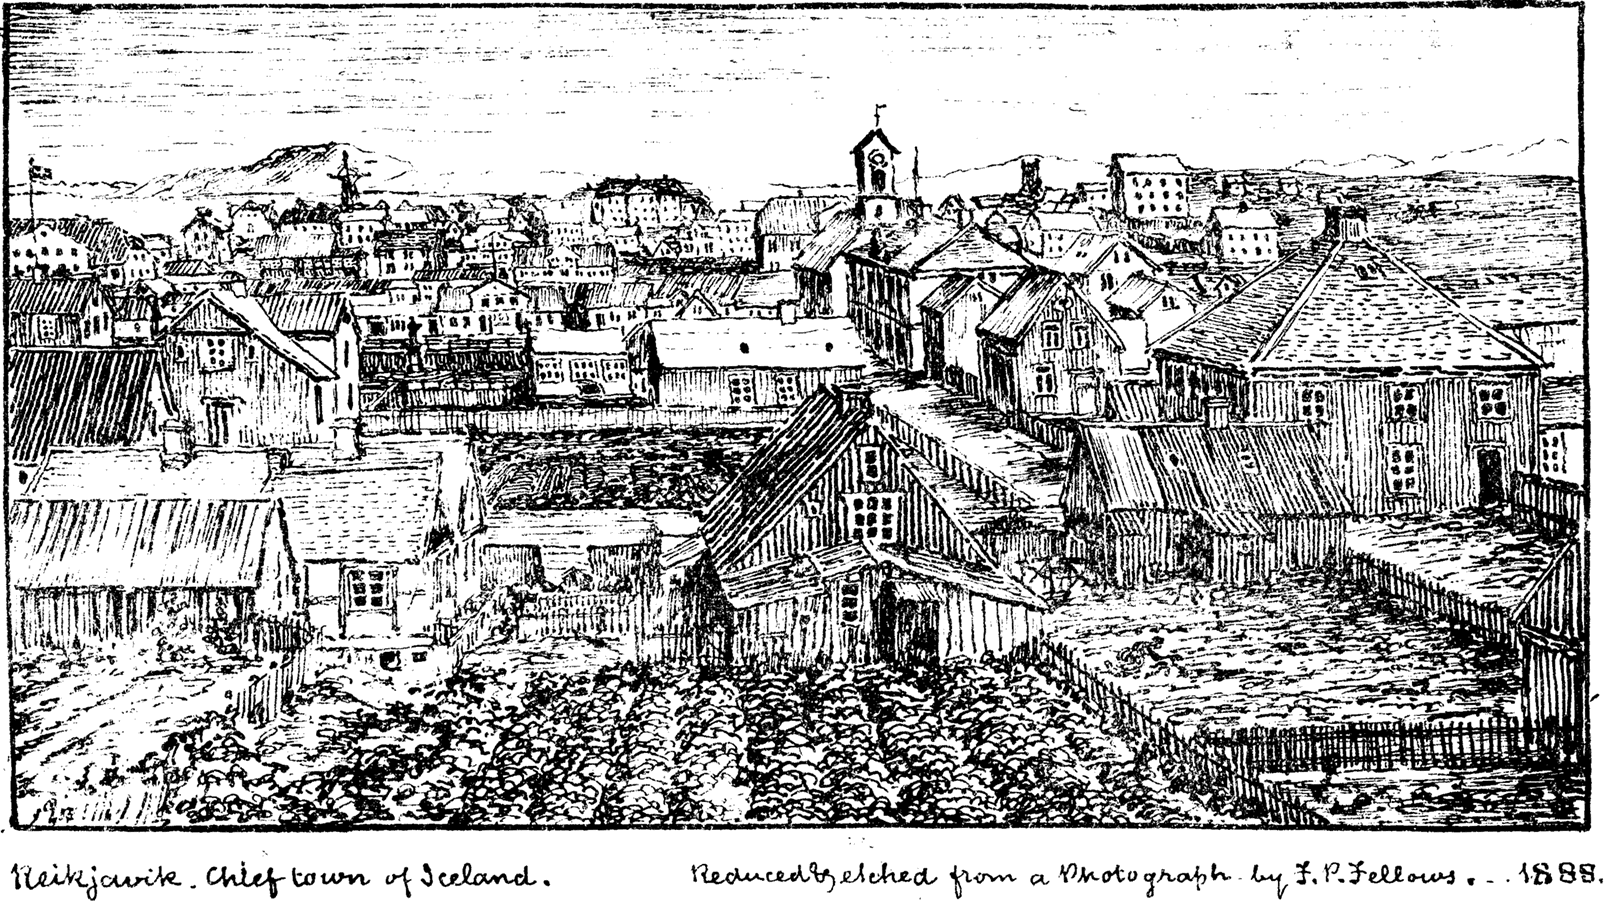 Reikjavik. Chief town of Iceland.
Reduced & etched from a Photograph by F. P. Fellows. .. 1888.